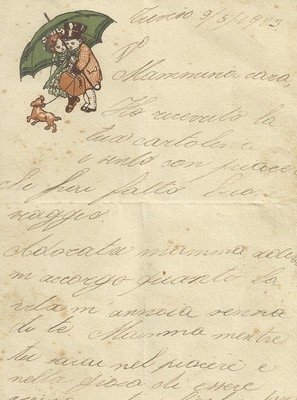 Mammina cara,
Ho ricevuto la
tua cartolina e
sento con piacere
che hai fatto buon
viaggio.
Adorata mamma adesso
m'accorgo quanto la
vita m'annoia senza
di te Mamma mentre
tu vivi nel piacere e
nella gioia di essere